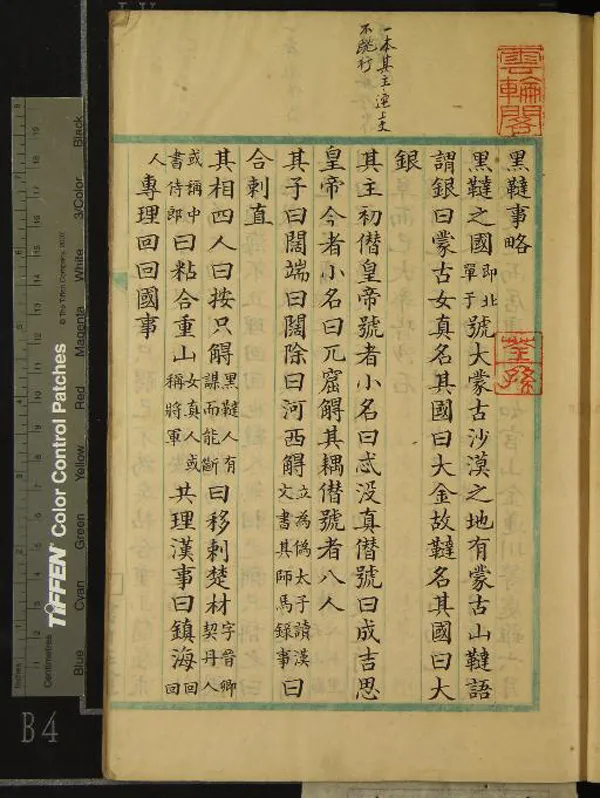 一本其主連上文
不跳行
雲輪閣
荃孫
黑韃事略
黑韃之國即北單于號大蒙古沙漠之地有蒙古山韃語
謂銀曰蒙古女真名其國曰大金故韃名其國曰大
銀
其主初僣皇帝號者小名曰忒没真僣號曰成吉思
皇帝今者小名曰兀窟䚟其耦僣號者八人
其子曰闊端曰闊除曰河西䚟立為偽太子讀漢文書其師馬錄事曰
合剌直
其相四人曰按只䚟黑韃人有謀而能斷曰移剌楚材字晉卿契丹人
或稱中書侍郎曰粘合重山女真人或稱將軍共理漢事曰鎮海回回
人專理回回國事
Inches
Centimetres
TIFFEN Color Control Patches
© The Tiffen Company, 2007
Blue
Cyan
Green
Yellow
Red
Magenta
White
3/Color
Black
B4